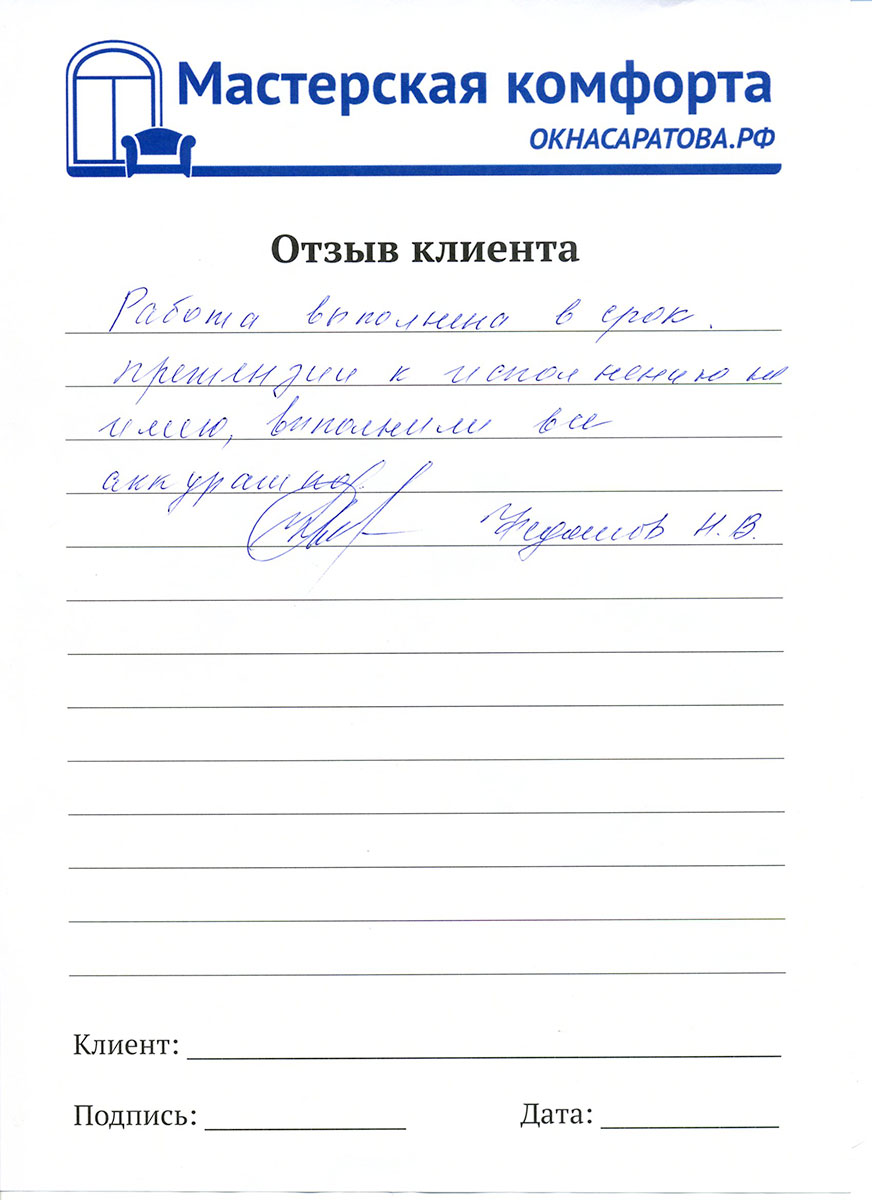 Мастерская комфорта
ОКНАСАРАТОВА.РФ
Отзыв клиента
Работа выполнена в срок.
претензии к исполнению не
имею, выполнили все
аккуратно.
Н.В.
Клиент:
Подпись:
Дата: